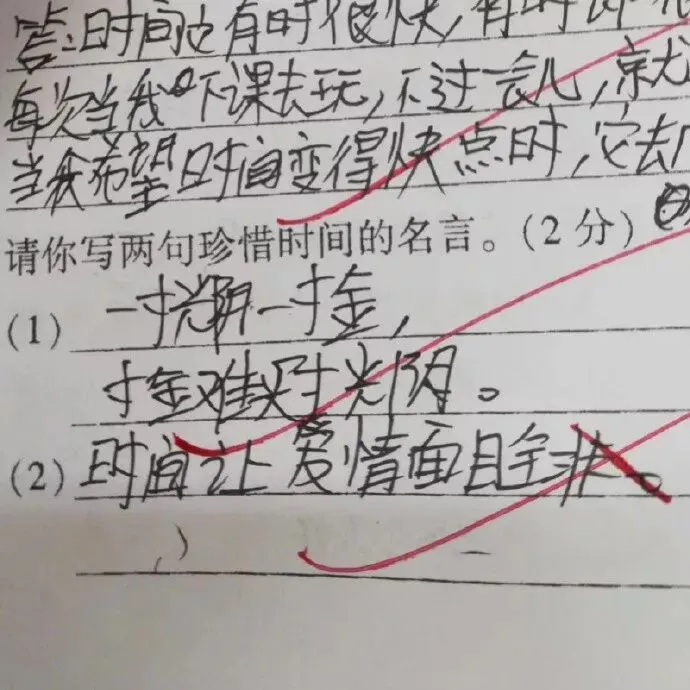 答:时间也有时很快,有时却很
每次当我下课去玩,不过一会儿,就
当我希望时间变得快点时,它去
请你写两句珍惜时间的名言。(2分)
(1) 一寸光阴一寸金,
寸金难买寸光阴。
(2) 时间让爱情面目全非。